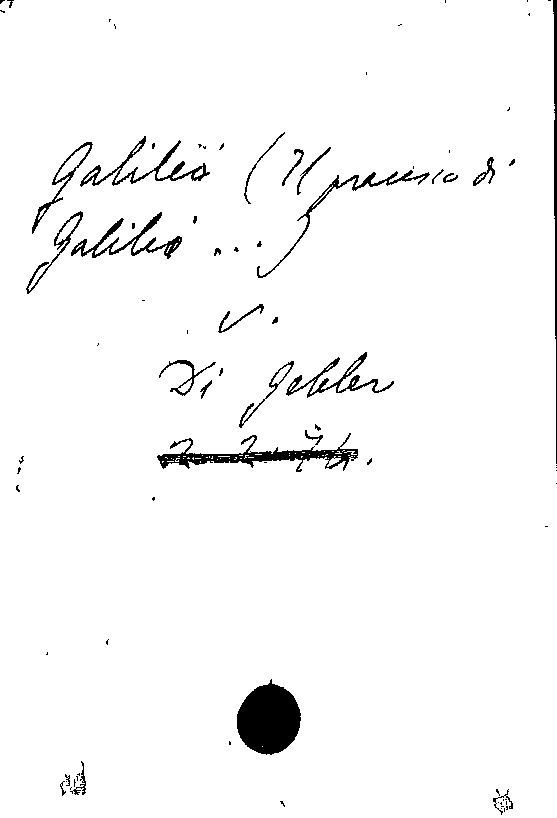 Galileo (Il processo di
Galileo ...)
v.
Di Gebler